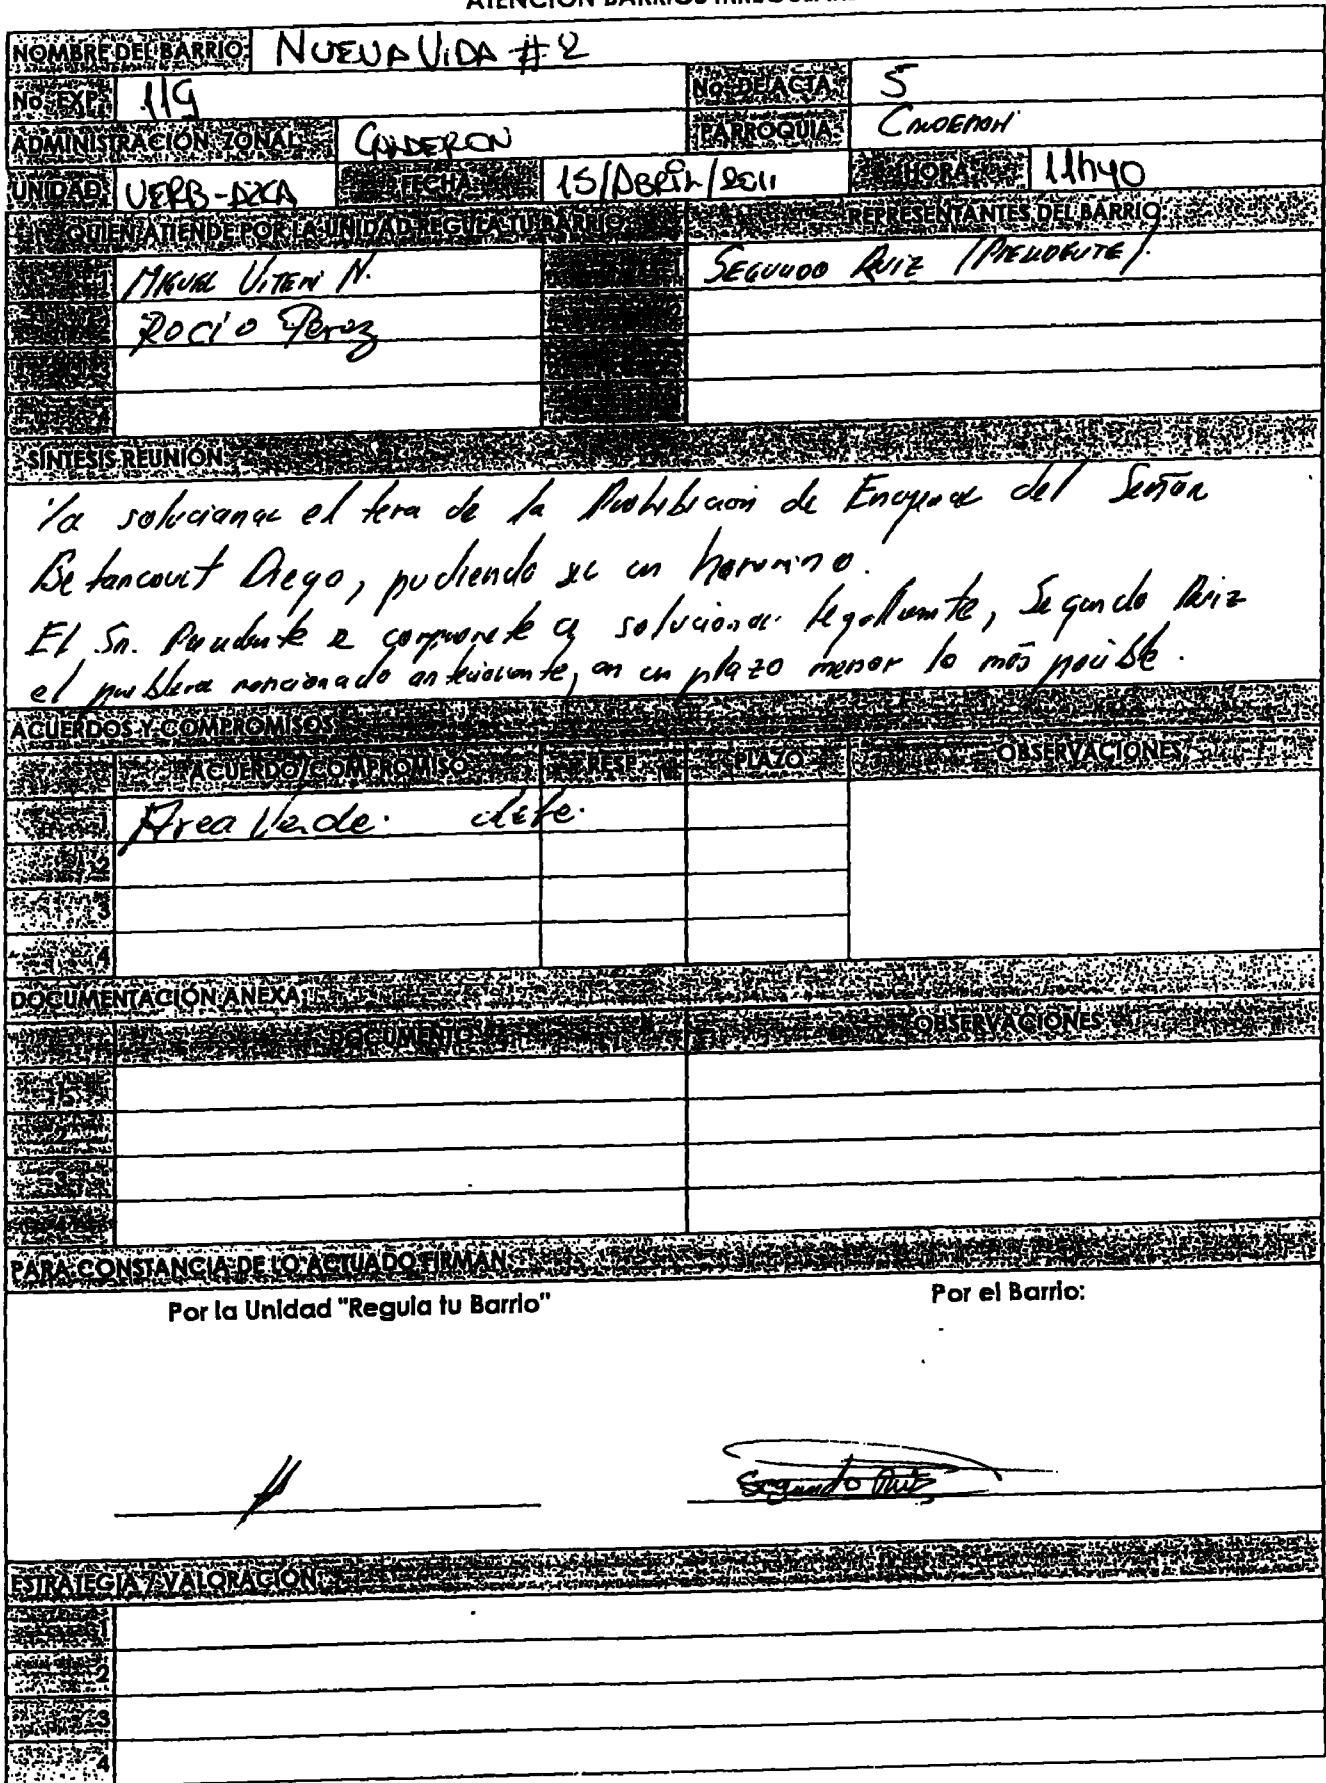 ATENCIÓN BARRIOS IRREGULARES
NOMBRE DEL BARRIO: NUEVA VIDA # 2
No. EXP. 119 No. DE ACTA 5
ADMINISTRACIÓN ZONAL: CALDERON PARROQUIA: CALDERON
UNIDAD: UERB-AZCA FECHA: 15/ABRIL/2011 HORA: 11h40
QUIEN ATIENDE POR LA UNIDAD REGULA TU BARRIO REPRESENTANTES DEL BARRIO:
MIGUEL VITERI N. SEGUNDO RUIZ (PRESIDENTE).
Rocio Perez
SINTESIS REUNION:
solucionar el tema de la Prohibición de Enajenar del Señor
Betancourt Diego, pudiendo ser un homonimo.
El Sr. Presidente se compromete a solucionar legalmente, Segundo Ruiz
el problema mencionado anteriormente, en un plazo menor lo más posible.
ACUERDOS Y COMPROMISOS
ACUERDO/COMPROMISO RESP. PLAZO OBSERVACIONES
1 Area Verde.
2
3
4
DOCUMENTACION ANEXA:
DOCUMENTO OBSERVACIONES
PARA CONSTANCIA DE LO ACTUADO FIRMAN:
Por la Unidad "Regula tu Barrio" Por el Barrio:
Segundo Ruiz
ESTRATEGIA / VALORACION:
1
2
3
4